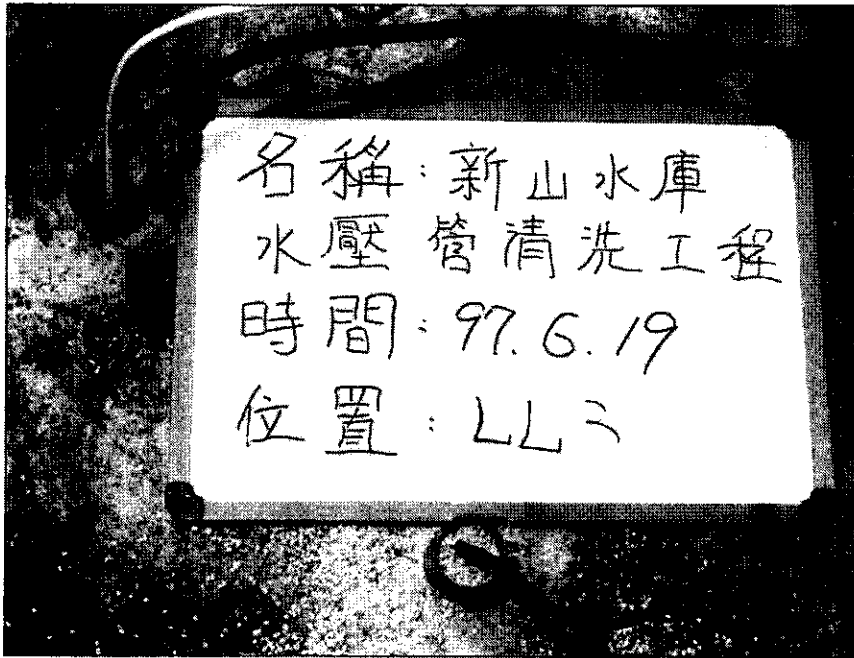 名稱:新山水庫
水壓管清洗工程
時間:97.6.19
位置:LL